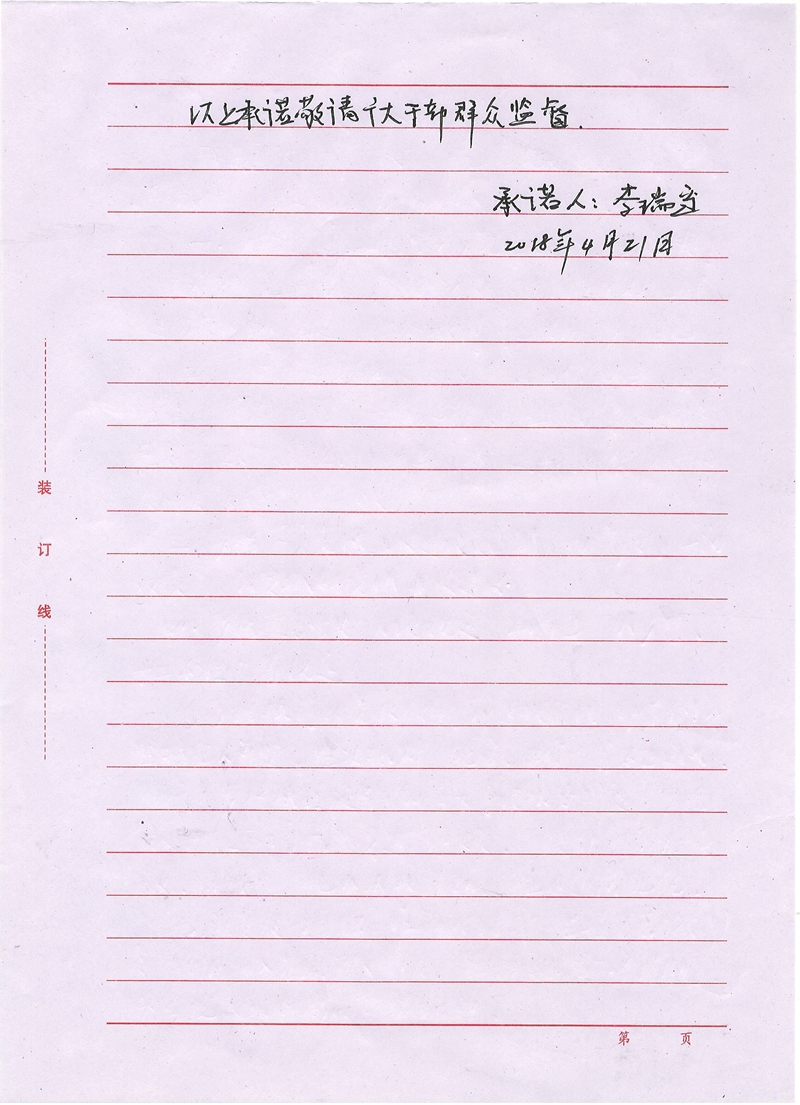 以上承诺敬请广大干部群众监督.
承诺人：李瑞
2018年4月21日
装
订
线
第 页